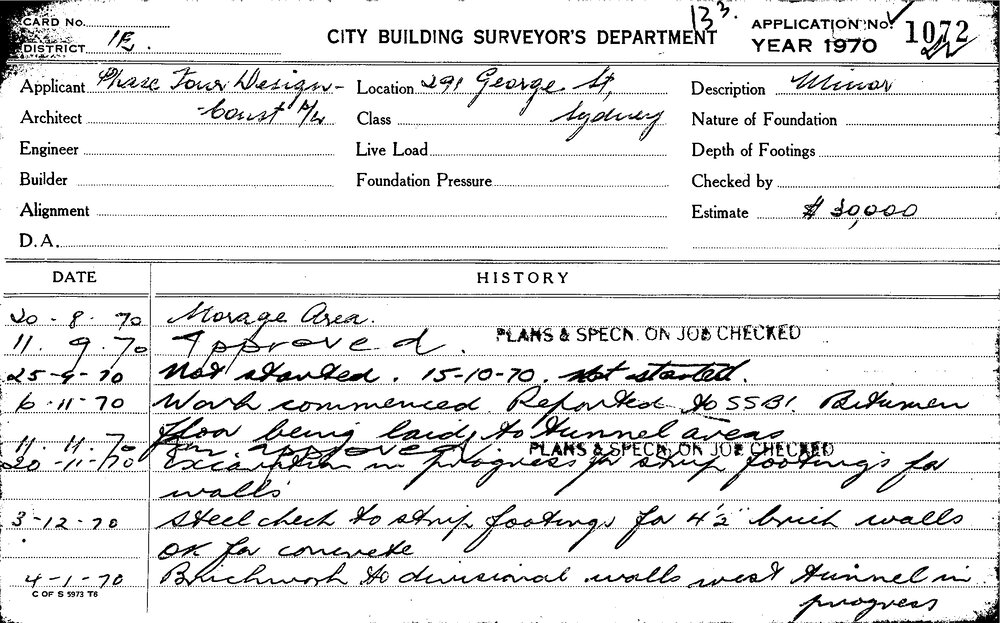 133.
CARD No.
DISTRICT 1E.
CITY BUILDING SURVEYOR'S DEPARTMENT
APPLICATION No. 1072
YEAR 1970
Applicant Phase Four Design-
Location 291 George St,
Description Minor
Architect Const P/L
Class Sydney
Nature of Foundation
Engineer
Live Load
Depth of Footings
Builder
Foundation Pressure
Checked by
Alignment
Estimate $ 30,000
D.A.
DATE HISTORY
20-8-70 Area.
11.9.70 Approved. PLANS & SPECN. ON JOB CHECKED
25-9-70 Not started. 15-10-70. Not started.
6-11-70 Work commenced Reported to SSBI. Bitumen
floor being laid to tunnel areas
11.11.70 approved PLANS & SPECN. ON JOB CHECKED
20-11-70 Excavation in progress for strip footings for
walls
3-12-70 Steel check to strip footings for 4½" brick walls
OK for concrete
4-1-70 Brickwork to divisional walls west tunnel in
progress
C OF S 5973 T6